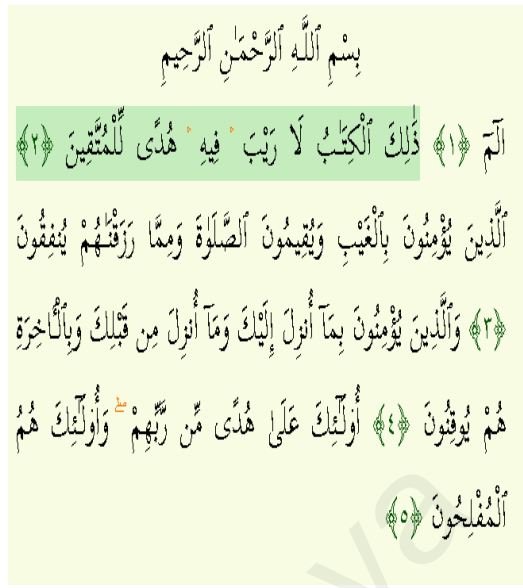 بِسْمِ ٱللَّهِ ٱلرَّحْمَـٰنِ ٱلرَّحِيمِ
الٓمٓ ﴿١﴾ ذَٰلِكَ ٱلْكِتَـٰبُ لَا رَيْبَ ۛ فِيهِ ۛ هُدًى لِّلْمُتَّقِينَ ﴿٢﴾
ٱلَّذِينَ يُؤْمِنُونَ بِٱلْغَيْبِ وَيُقِيمُونَ ٱلصَّلَوٰةَ وَمِمَّا رَزَقْنَـٰهُمْ يُنفِقُونَ
﴿٣﴾ وَٱلَّذِينَ يُؤْمِنُونَ بِمَآ أُنزِلَ إِلَيْكَ وَمَآ أُنزِلَ مِن قَبْلِكَ وَبِٱلْـَٔاخِرَةِ
هُمْ يُوقِنُونَ ﴿٤﴾ أُو۟لَـٰٓئِكَ عَلَىٰ هُدًى مِّن رَّبِّهِمْ ۖ وَأُو۟لَـٰٓئِكَ هُمُ
ٱلْمُفْلِحُونَ ﴿٥﴾